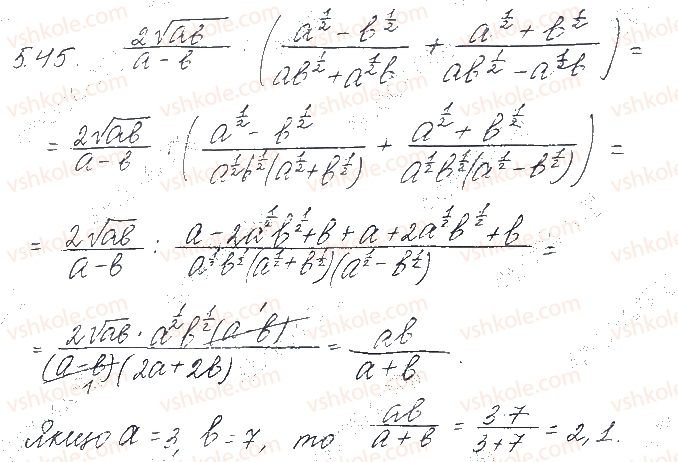 5.45. \frac{2\sqrt{ab}}{a-b} : \left( \frac{a^{\frac{1}{2}} - b^{\frac{1}{2}}}{ab^{\frac{1}{2}} + a^{\frac{1}{2}}b} + \frac{a^{\frac{1}{2}} + b^{\frac{1}{2}}}{ab^{\frac{1}{2}} - a^{\frac{1}{2}}b} \right) =
= \frac{2\sqrt{ab}}{a-b} : \left( \frac{a^{\frac{1}{2}} - b^{\frac{1}{2}}}{a^{\frac{1}{2}}b^{\frac{1}{2}}(a^{\frac{1}{2}} + b^{\frac{1}{2}})} + \frac{a^{\frac{1}{2}} + b^{\frac{1}{2}}}{a^{\frac{1}{2}}b^{\frac{1}{2}}(a^{\frac{1}{2}} - b^{\frac{1}{2}})} \right) =
= \frac{2\sqrt{ab}}{a-b} : \frac{a - 2a^{\frac{1}{2}}b^{\frac{1}{2}} + b + a + 2a^{\frac{1}{2}}b^{\frac{1}{2}} + b}{a^{\frac{1}{2}}b^{\frac{1}{2}}(a^{\frac{1}{2}} + b^{\frac{1}{2}})(a^{\frac{1}{2}} - b^{\frac{1}{2}})} =
= \frac{2\sqrt{ab} \cdot a^{\frac{1}{2}}b^{\frac{1}{2}}(a-b)}{(a-b)(2a+2b)} = \frac{ab}{a+b}.
Якщо a = 3, b = 7, то \frac{ab}{a+b} = \frac{3 \cdot 7}{3+7} = 2,1.
vshkole.com